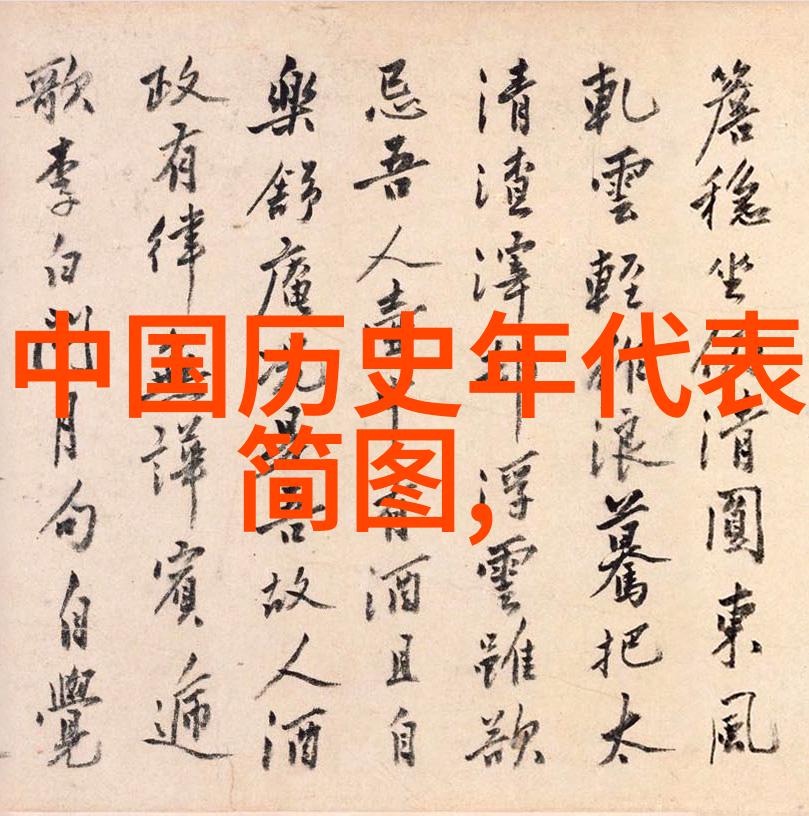 中国历史年代表
简图,
簷穩坐
清圓東風
軋雲輕
浪驀把太
清渣滓
浮雲雖欲
忌吾人
有酒且自
樂舒庵
吾故人酒
政有律
譁賓遞
歌李白
月句自覺